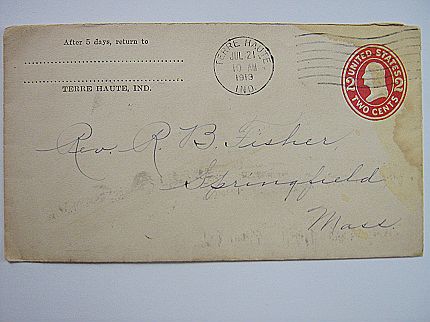 After 5 days, return to
TERRE HAUTE, IND.
TERRE HAUTE
JUL 21
10 AM
1913
IND.
UNITED STATES
2 2
TWO CENTS
Rev. R. B. Fisher,
Springfield
Mass.